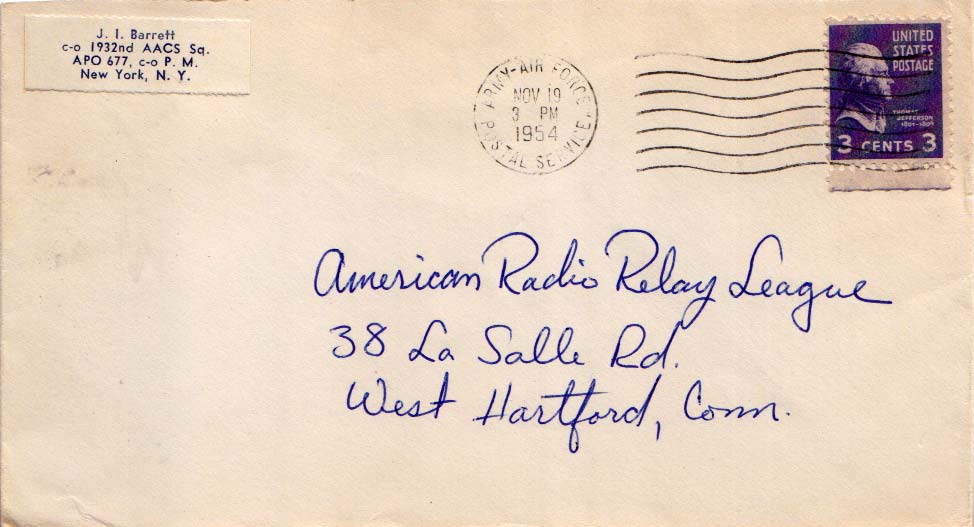 J. I. Barrett
c-o 1932nd AACS Sq.
APO 677, c-o P. M.
New York, N. Y.
ARMY-AIR FORCE
NOV 19
3 PM
1954
POSTAL SERVICE
UNITED
STATES
POSTAGE
THOMAS
JEFFERSON
1801-1809
3 CENTS 3
American Radio Relay League
38 La Salle Rd.
West Hartford, Conn.